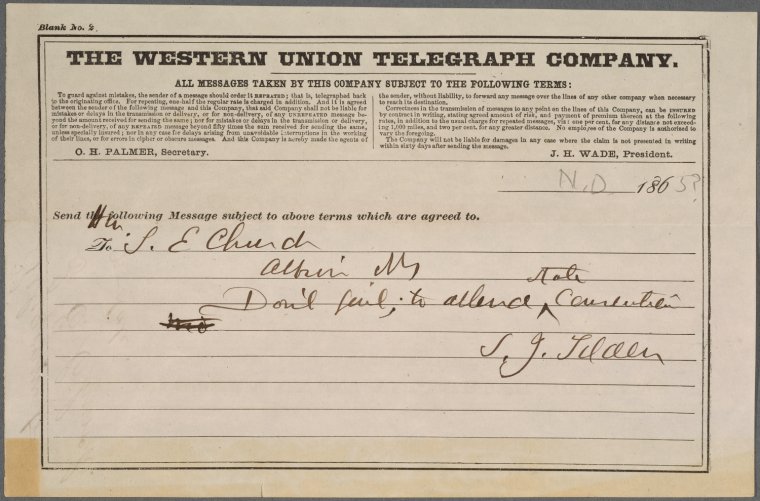 Blank No. 2.
THE WESTERN UNION TELEGRAPH COMPANY.
ALL MESSAGES TAKEN BY THIS COMPANY SUBJECT TO THE FOLLOWING TERMS:
To guard against mistakes, the sender of a message should order it REPEATED; that is, telegraphed back
to the originating office. For repeating, one-half the regular rate is charged in addition. And it is agreed
between the sender of the following message and this Company, that said Company shall not be liable for
mistakes or delays in the transmission or delivery, or for non-delivery, of any UNREPEATED message be-
yond the amount received for sending the same; nor for mistakes or delays in the transmission or delivery,
or for non-delivery, of any REPEATED message beyond fifty times the sum received for sending the same,
unless specially insured; nor in any case for delays arising from unavoidable interruptions in the working
of their lines, or for errors in cipher or obscure messages. And this Company is hereby made the agents of
the sender, without liability, to forward any message over the lines of any other company when necessary
to reach its destination.
Correctness in the transmission of messages to any point on the lines of this Company, can be INSURED
by contract in writing, stating agreed amount of risk, and payment of premium thereon at the following
rates, in addition to the usual charge for repeated messages, viz: one per cent. for any distance not exceed-
ing 1,000 miles, and two per cent. for any greater distance. No employee of the Company is authorized to
vary the foregoing.
The Company will not be liable for damages in any case where the claim is not presented in writing
within sixty days after sending the message.
O. H. PALMER, Secretary.
J. H. WADE, President.
N.D. 1865?
Send the following Message subject to above terms which are agreed to.
Hon.
To S. E Church
Albion NY
Don't fail, to attend State Convention
S. J. Tilden